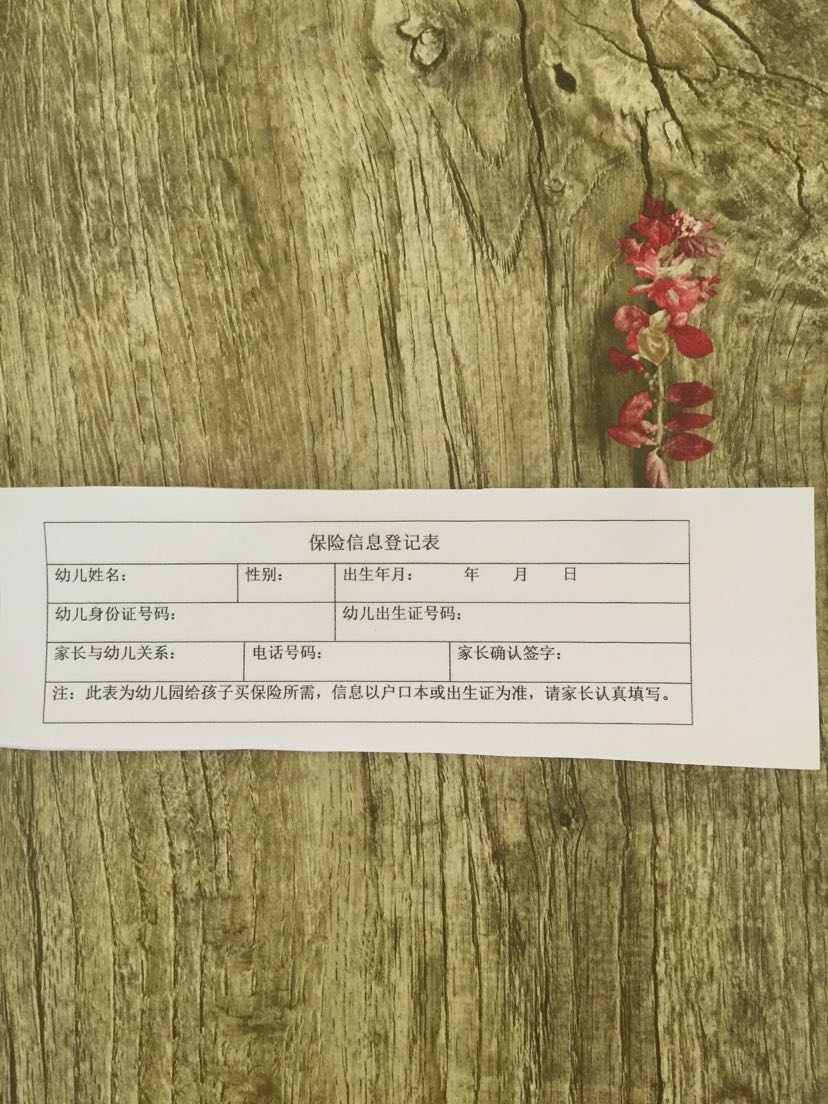 保险信息登记表
幼儿姓名： 性别： 出生年月： 年 月 日
幼儿身份证号码： 幼儿出生证号码：
家长与幼儿关系： 电话号码： 家长确认签字：
注：此表为幼儿园给孩子买保险所需，信息以户口本或出生证为准，请家长认真填写。